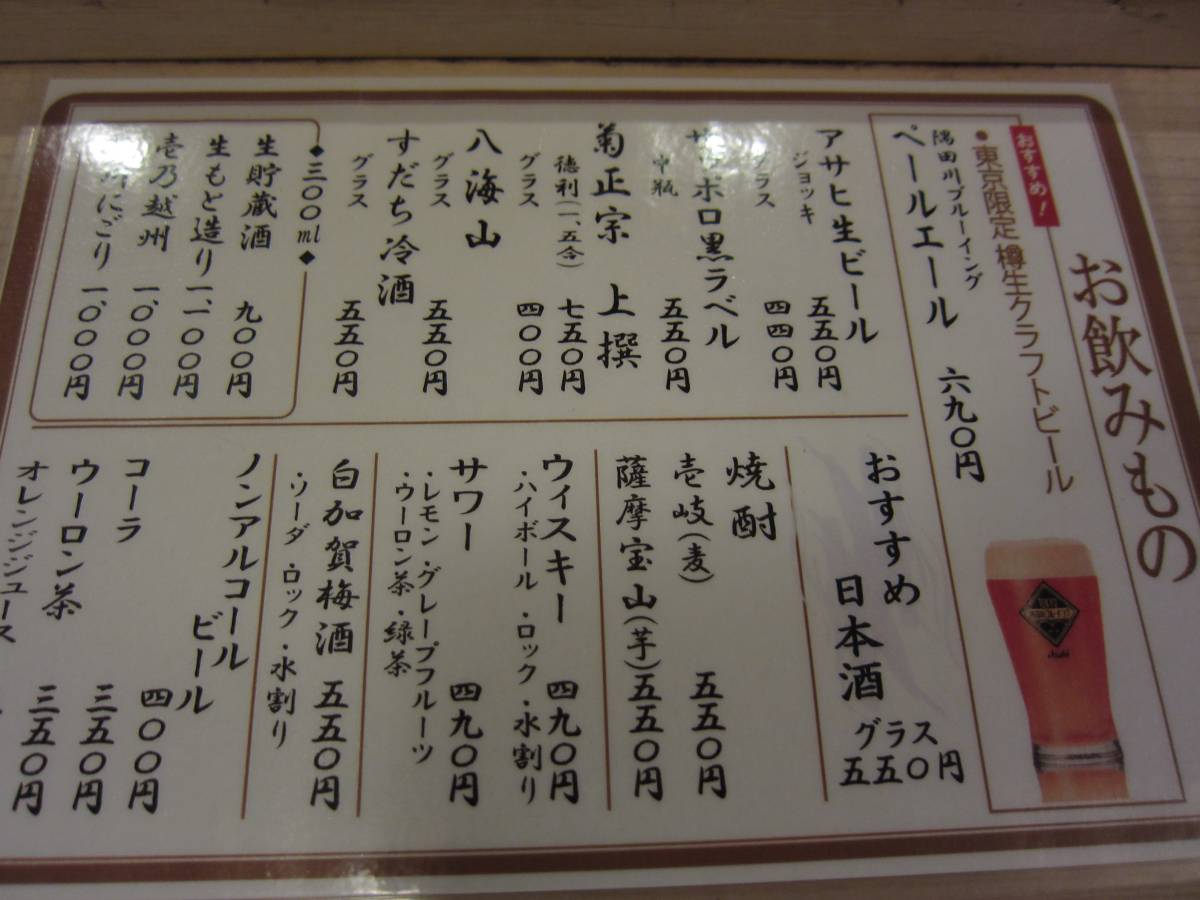 お飲みもの
おすすめ!
●東京限定 樽生クラフトビール
隅田川ブルーイング
ペールエール 六九〇円
アサヒ生ビール
ジョッキ 五五〇円
グラス 四四〇円
サッポロ黒ラベル
中瓶 五五〇円
菊正宗 上撰
徳利(一、五合) 七五〇円
グラス 四〇〇円
八海山
グラス 五五〇円
すだち冷酒
グラス 五五〇円
◆三〇〇ml◆
生貯蔵酒 九〇〇円
生もと造り 一、一〇〇円
壱乃越州 一、〇〇〇円
にごり 一、〇〇〇円
おすすめ
日本酒
グラス
五五〇円
焼酎
壱岐(麦) 五五〇円
薩摩宝山(芋) 五五〇円
ウィスキー 四九〇円
・ハイボール・ロック・水割り
サワー 四九〇円
・レモン・グレープフルーツ
・ウーロン茶・緑茶
白加賀梅酒 五五〇円
・ソーダ・ロック・水割り
ノンアルコール
ビール
四〇〇円
コーラ 三五〇円
ウーロン茶 三五〇円
オレンジジュース
Asahi